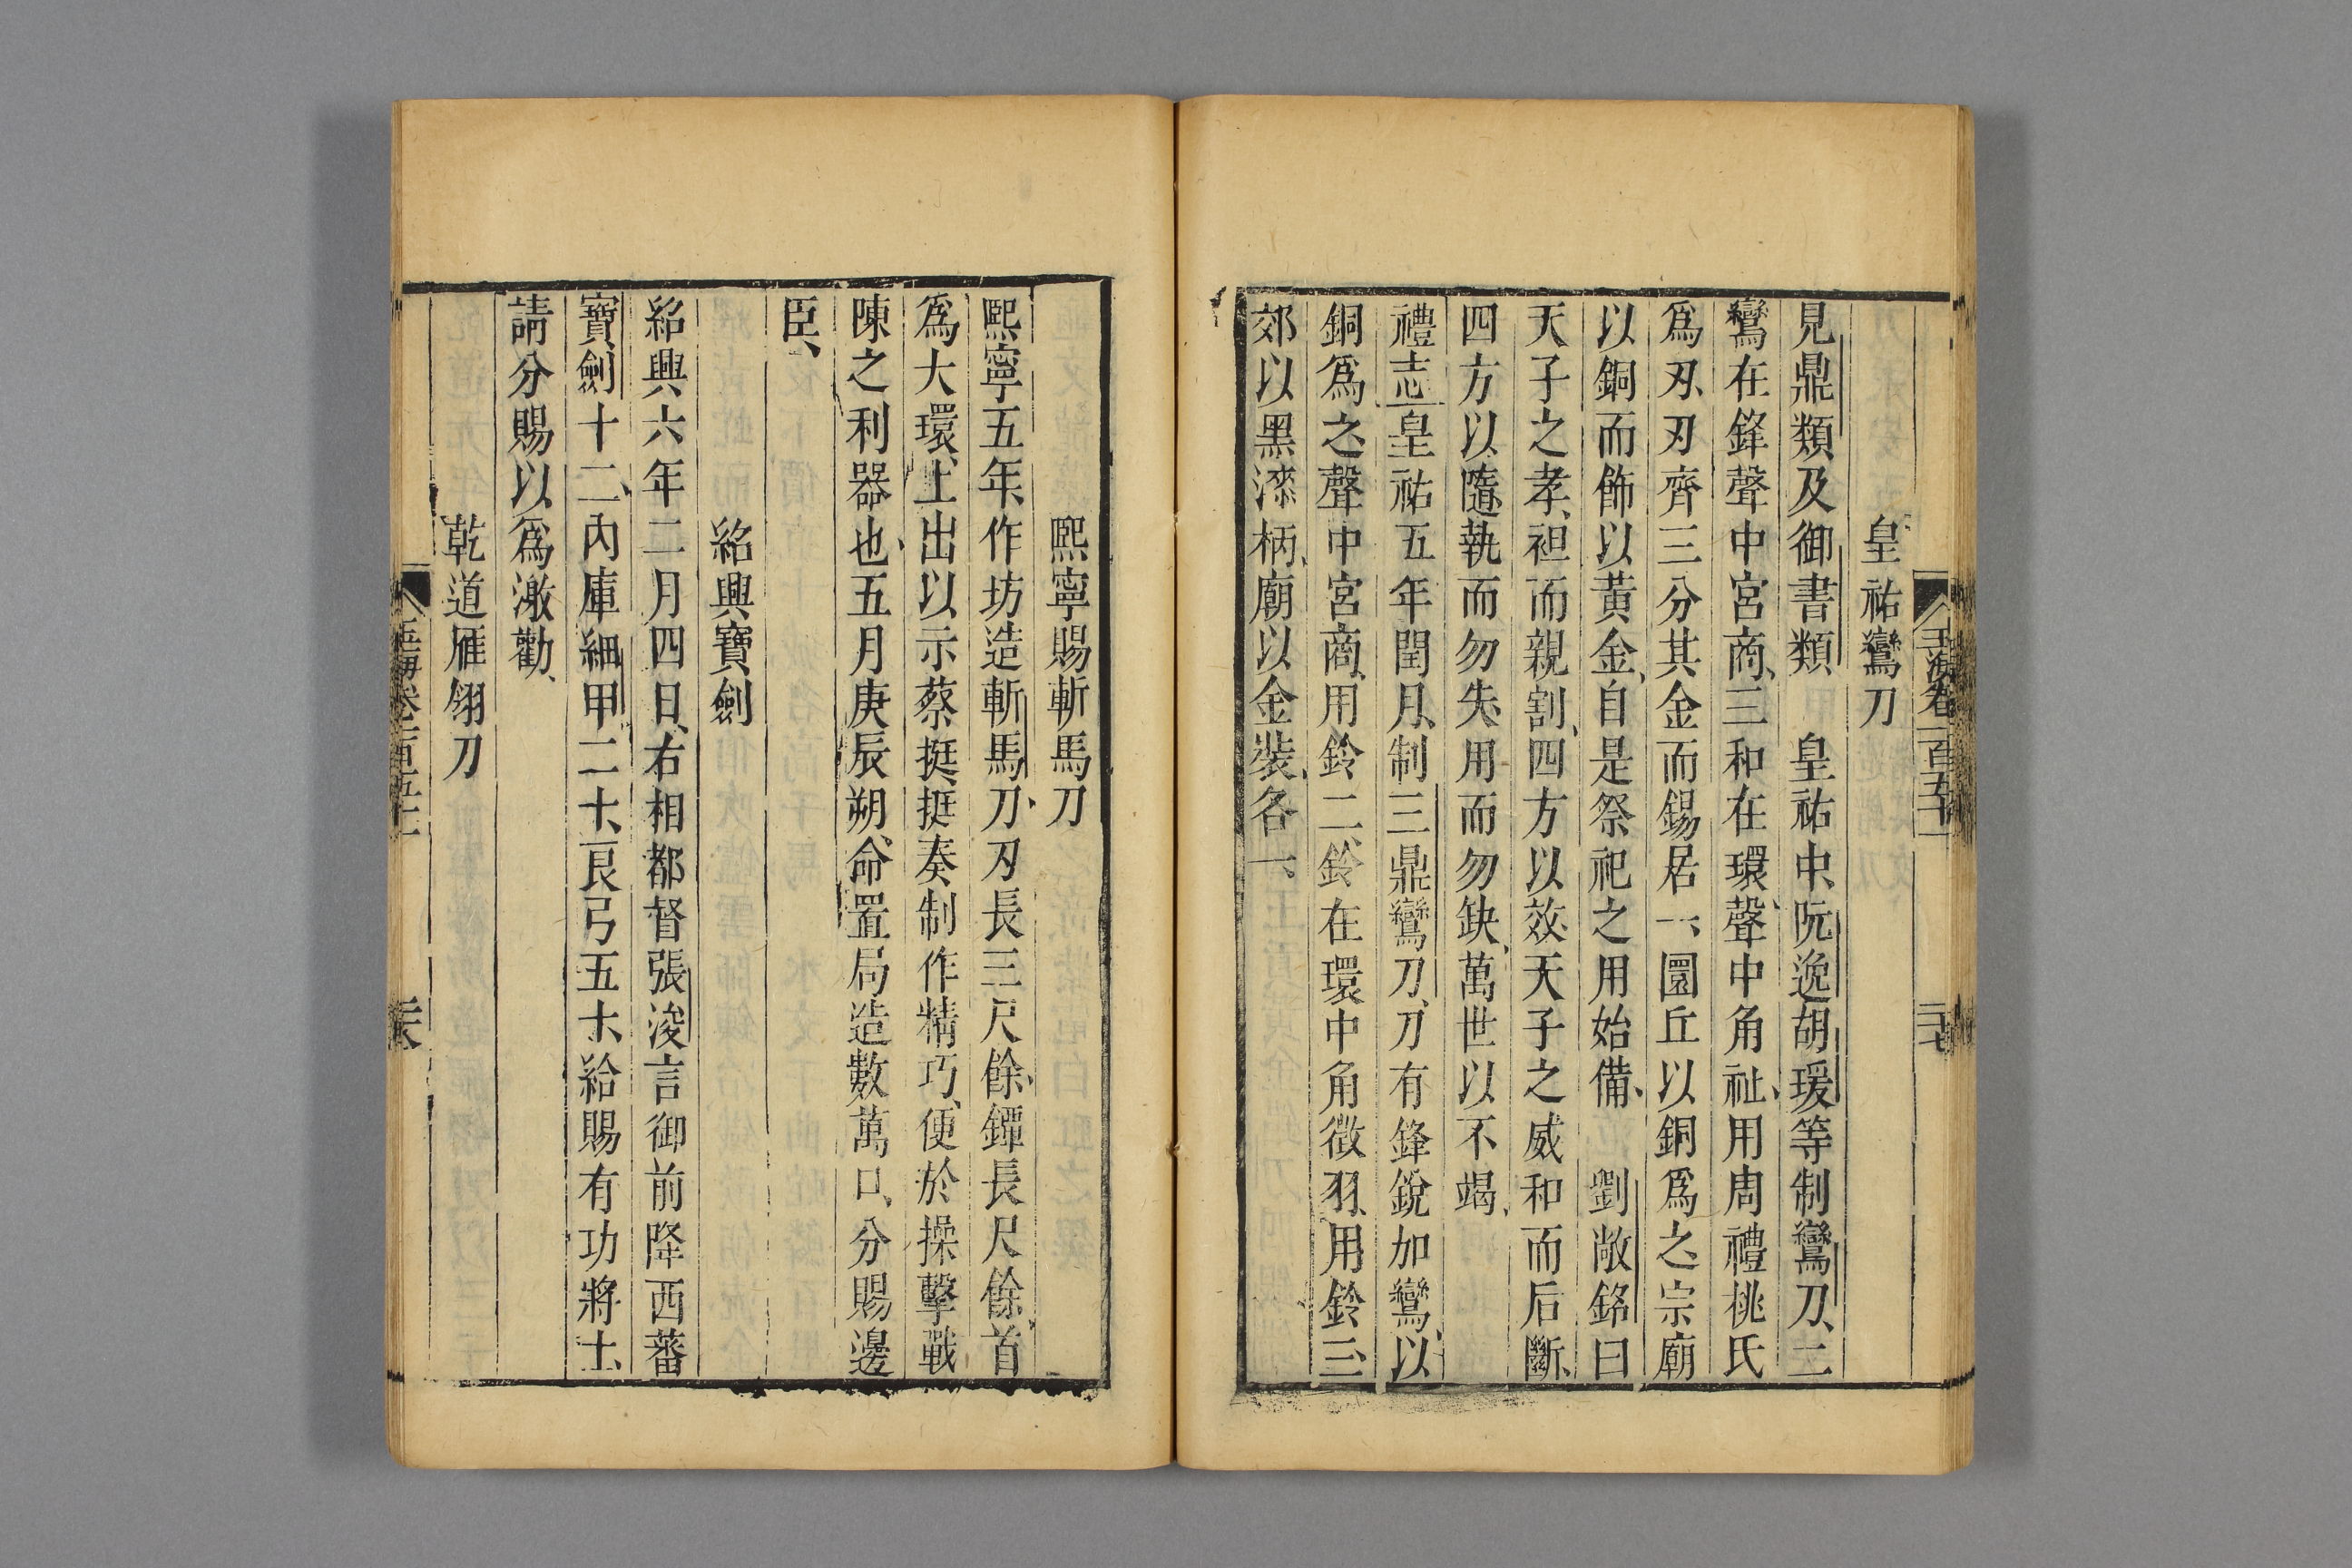 皇祐鸞刀
見鼎類及御書類　皇祐中、阮逸胡瑗等制鸞刀、二
鸞在鋒聲中宮商、三和在環、聲中角祉、用周禮桃氏
爲刃、刃齊三分其金而錫居一、圜丘以銅爲之、宗廟
以銅而飾以黃金、自是祭祀之用始備、　劉敞銘曰
天子之孝、袒而親割、四方以效、天子之威和而后斷、
四方以隨、執而勿失、用而勿缺、萬世以不竭、
禮志皇祐五年閏月、制三鼎鸞刀、刀有鋒銳加鸞、以
銅爲之、聲中宮商、用鈴二、鈴在環中角徵羽、用鈴三、
郊以黑漆柄、廟以金裝、各一、
熙寧賜斬馬刀
熙寧五年、作坊造斬馬刀、刃長三尺餘、鐔長尺餘、首
爲大環、上出以示蔡挺、挺奏制作精巧、便於操擊戰
陳之利器也、五月庚辰朔、命置局造數萬口、分賜邊
臣、
紹興寶劍
紹興六年二月四日、右相都督張浚言御前降西蕃
寶劍十二、內庫細甲二十、良弓五十、給賜有功將士、
請分賜以爲激勸、
乾道雁翎刀